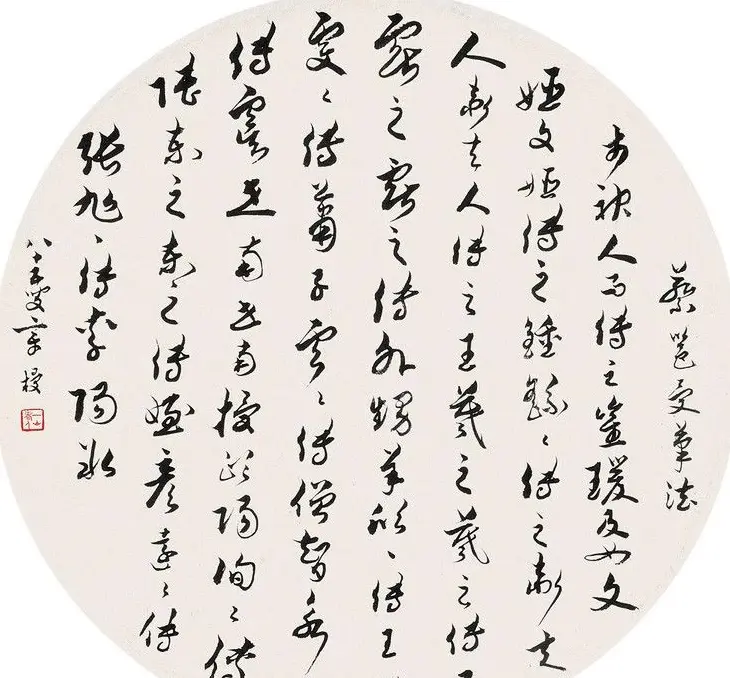 蔡邕受筆法
於神人而傳之崔瑗及女文
姬文姬傳之鍾繇繇傳之衛夫
人衛夫人傳之王羲之羲之傳王
獻之獻之傳外甥羊欣欣傳王
虔虔傳蕭子雲雲傳僧智永
傳虞世南世南授歐陽詢詢傳
陸柬之柬之傳姪彦遠遠傳
張旭旭傳李陽冰
八十叟